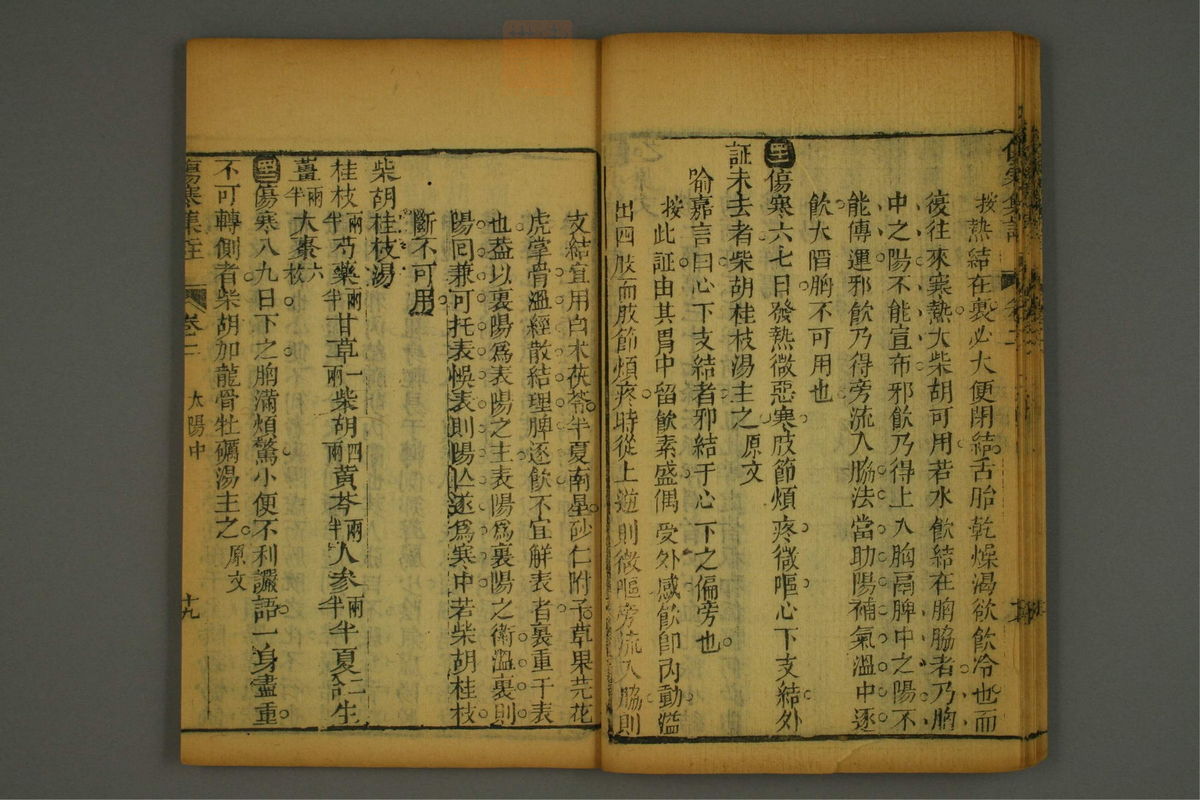 按熱結在裏必大便閉結舌胎乾燥渴欲飲冷也而
復往來寒熱大柴胡可用若水飲結在胸脇者乃胸
中之陽不能宣布邪飲乃得上入胸膈脾中之陽不
能傳運邪飲乃得旁流入脇法當助陽補氣溫中逐
飲大陷胸不可用也
傷寒六七日發熱微惡寒肢節煩疼微嘔心下支結外
証未去者柴胡桂枝湯主之 原文
喻嘉言曰心下支結者邪結于心下之偏旁也
按此証由其胃中留飲素盛偶受外感飲卽內動濫
出四肢而肢節煩疼時從上逆則微嘔旁流入脇則
支結宜用白朮茯苓半夏南星砂仁附子草果芫花
虎掌骨溫經散結理脾逐飲不宜解表者裏重于表
也葢以裏陽爲表陽之主表陽爲裏陽之衛溫裏則
陽回兼可托表悞表則陽亾遂爲寒中若柴胡桂枝
斷不可用
柴胡桂枝湯
桂枝兩半芍藥兩半甘草一兩柴胡四兩黃芩兩半人參兩半半夏合二生
薑兩半大棗六枚
傷寒八九日下之胸滿煩驚小便不利讝語一身盡重
不可轉側者柴胡加龍骨牡礪湯主之 原文
傷寒集註 卷二 太陽中 十九